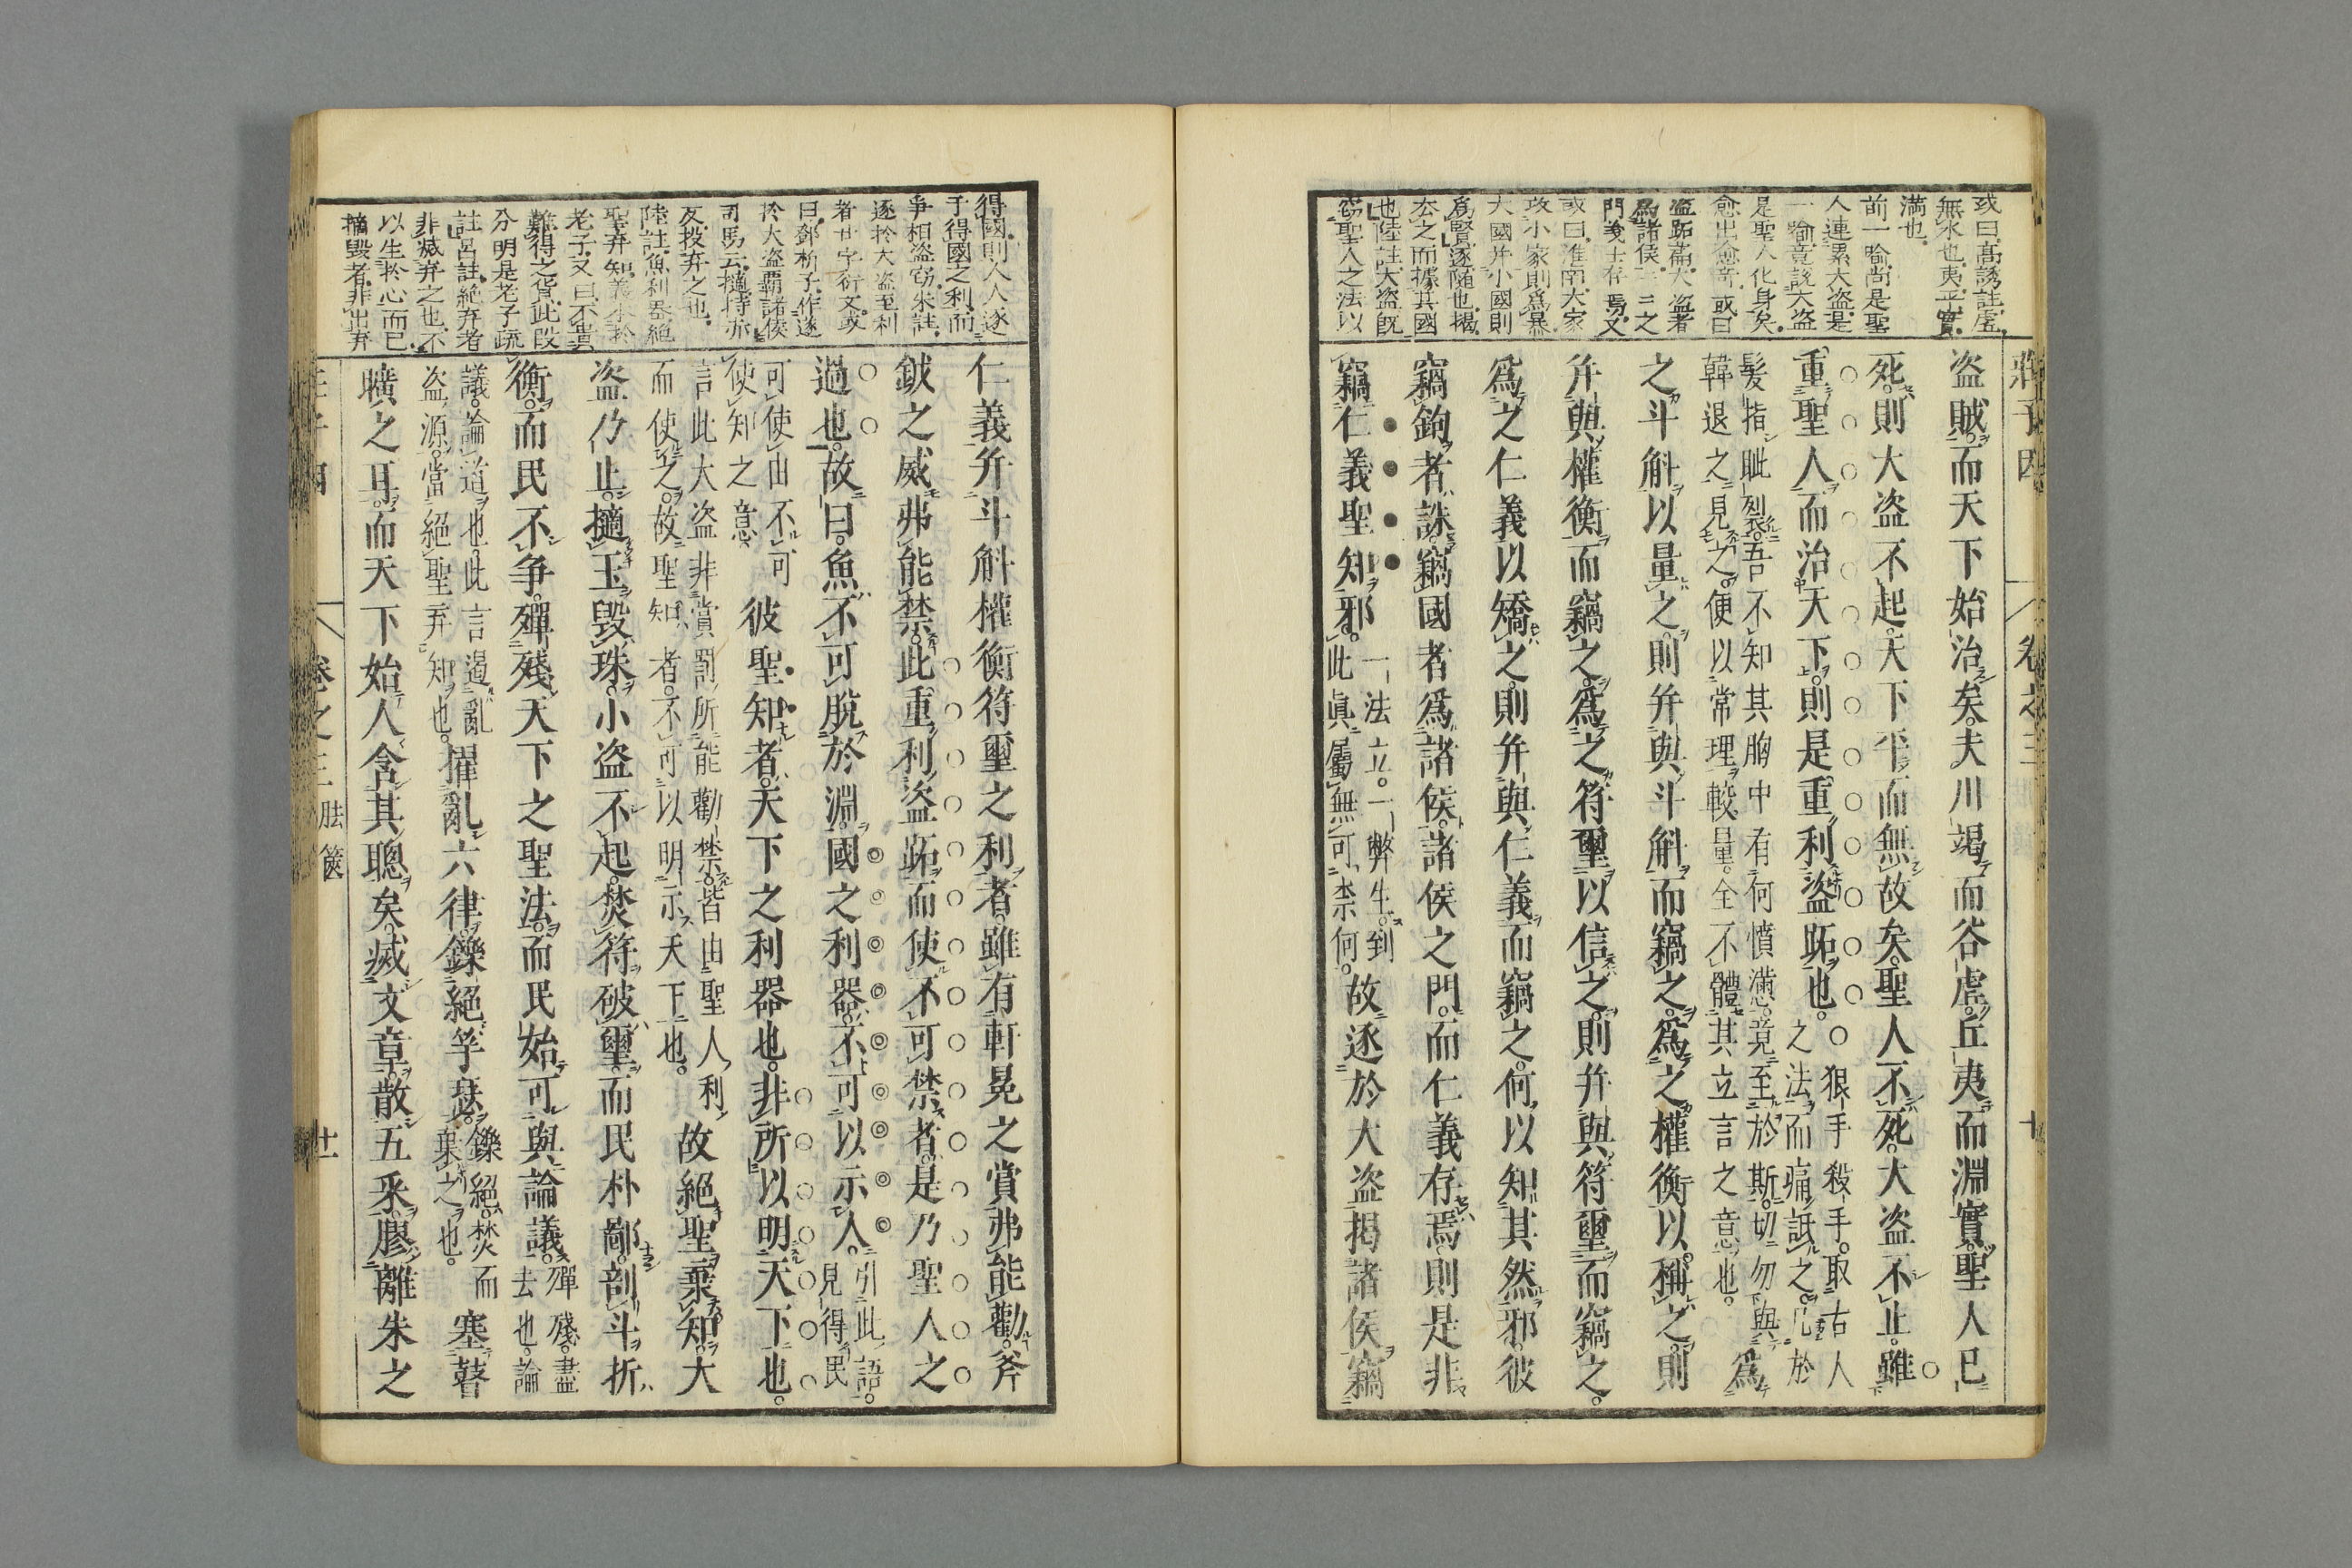 莊子因
卷之三
十
或曰高誘註虛
無水也夷平實
滿也
前一喻尚是聖
人連累大盜是
一喻竟說大盜
是聖人化身矣
愈出愈奇或曰
盜跖蓄大盜者
爲諸侯二三之
門義士存焉又
或曰淮南大家
攻小家則爲暴
大國幷小國則
爲賢逐隨也揭
去之而據其國
也陸註大盜旣
竊聖人之法以
盜賊而天下始治矣夫川竭而谷虛丘夷而淵實聖人已
死則大盜不起天下平而無故矣聖人不死大盜不止雖
重聖人而治天下則是重利盜跖也
狠手殺手取古人
之法而痛詆之凡於
髮指眦裂吾不知其胸中有何憤懣竟至於斯切勿與
韓退之見之便以常理較量全不體其立言之意也
爲
之斗斛以量之則幷與斗斛而竊之爲之權衡以稱之則
幷與權衡而竊之爲之符璽以信之則幷與符璽而竊之
爲之仁義以矯之則幷與仁義而竊之何以知其然邪彼
竊鉤者誅竊國者爲諸侯諸侯之門而仁義存焉則是非
竊仁義聖知邪
一法立一弊生到
此眞屬無可柰何
故逐於大盜揭諸侯竊
得國則人人逐
于得國之利而
爭相盜竊朱註
逐於大盜至利
者廿字衍文或
曰鄧析子作遂
於大盜霸諸侯
司馬云擿持亦
反投弃之也
陸註魚利器絕
聖弃知義本於
老子又曰不貴
難得之貨此段
分明是老子疏
註呂註絕弃者
非滅弃之也不
以生於心而已
擿毀者非出弃
仁義幷斗斛權衡符璽之利者雖有軒冕之賞弗能勸斧
鉞之威弗能禁此重利盜跖而使不可禁者是乃聖人之
過也故曰魚不可脫於淵國之利器不可以示人
引此語
見得民
可使由不可
使知之意
彼聖知者天下之利器也非所以明天下也
言此大盜非賞罰所能勸禁皆由聖人利
而使之故聖知者不可以明示天下也
故絕聖棄知大
盜乃止擿玉毀珠小盜不起焚符破璽而民朴鄙剖斗折
衡而民不爭殫殘天下之聖法而民始可與論議
殫殘盡
去也論
議論道也此言遏亂
盜源當絕聖弃知也
擢亂六律鑠絕竽瑟
鑠絕焚而
棄之也
塞瞽
曠之耳而天下始人含其聰矣滅文章散五采膠離朱之
卷之三
胠篋
十一